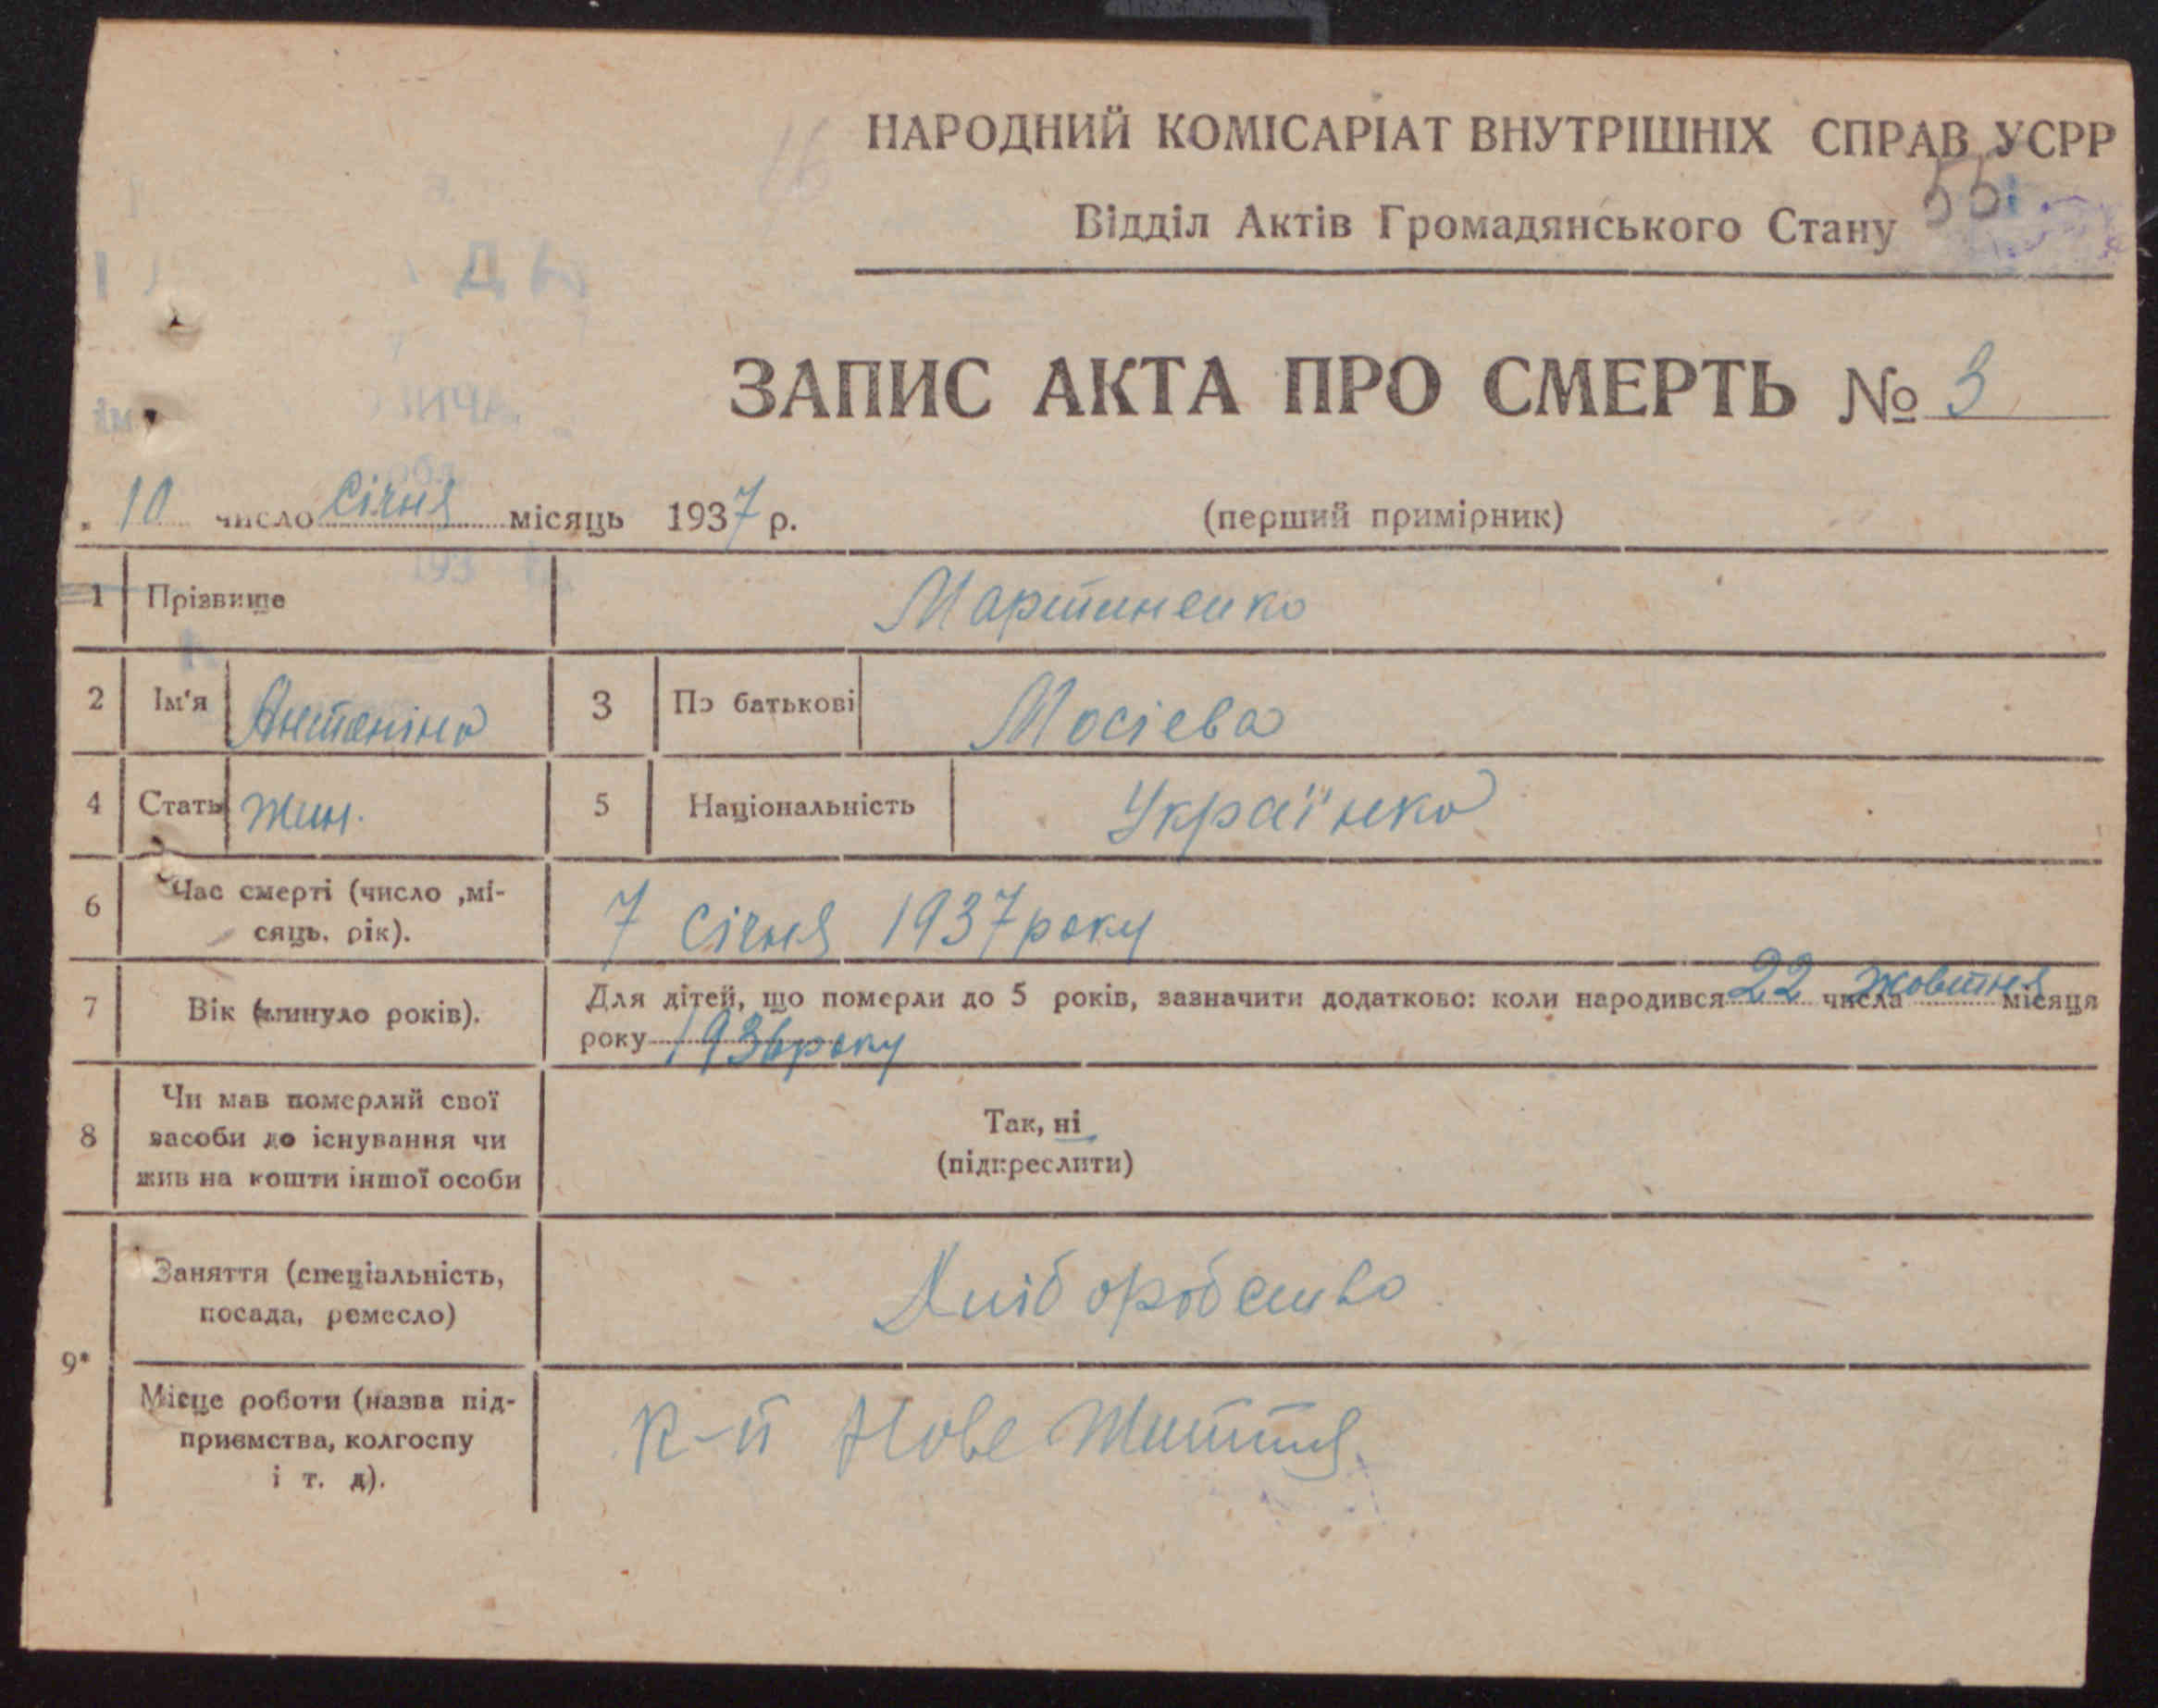 НАРОДНИЙ КОМІСАРІАТ ВНУТРІШНІХ СПРАВ УСРР
Відділ Актів Громадянського Стану
551
ЗАПИС АКТА ПРО СМЕРТЬ № 3
10 число Січня місяць 1937 р. (перший примірник)
1 Прізвище Мартиненко
2 Ім'я Антоніна 3 По батькові Мосієва
4 Стать жін. 5 Національність Українка
6 Час смерті (число ,мі-
сяць, рік). 7 Січня 1937 року
7 Вік (минуло років). Для дітей, що померли до 5 років, зазначити додатково: коли народився 22 числа жовтня місяця
року 1936 року
8 Чи мав померлий свої
засоби до існування чи
жив на кошти іншої особи
Так, ні
(підкреслити)
9*
Заняття (спеціальність,
посада, ремесло) Хліборобство
Місце роботи (назва під-
приємства, колгоспу
і т. д). к-п Нове Життя.